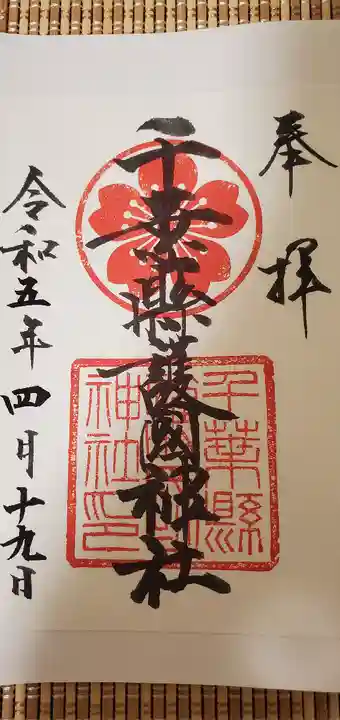 奉拝
千葉縣護國神社
千葉縣
護國
神社印
令和五年四月十九日